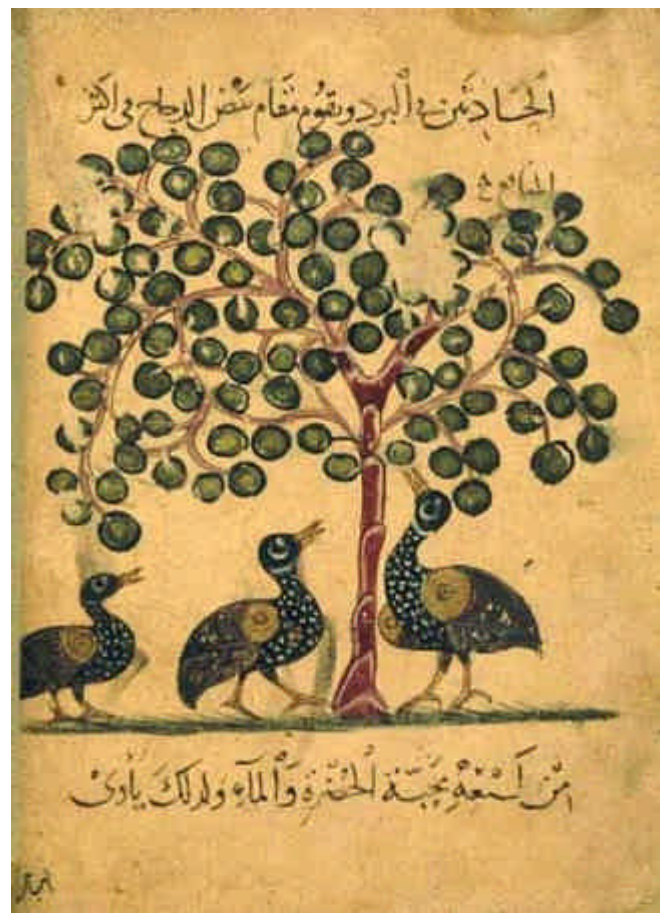 الحادث من البرد ويقوم مقام بيض الدجاج فى اكثر
المنافع
من محبة الخضرة والمآء ولذلك يأوى